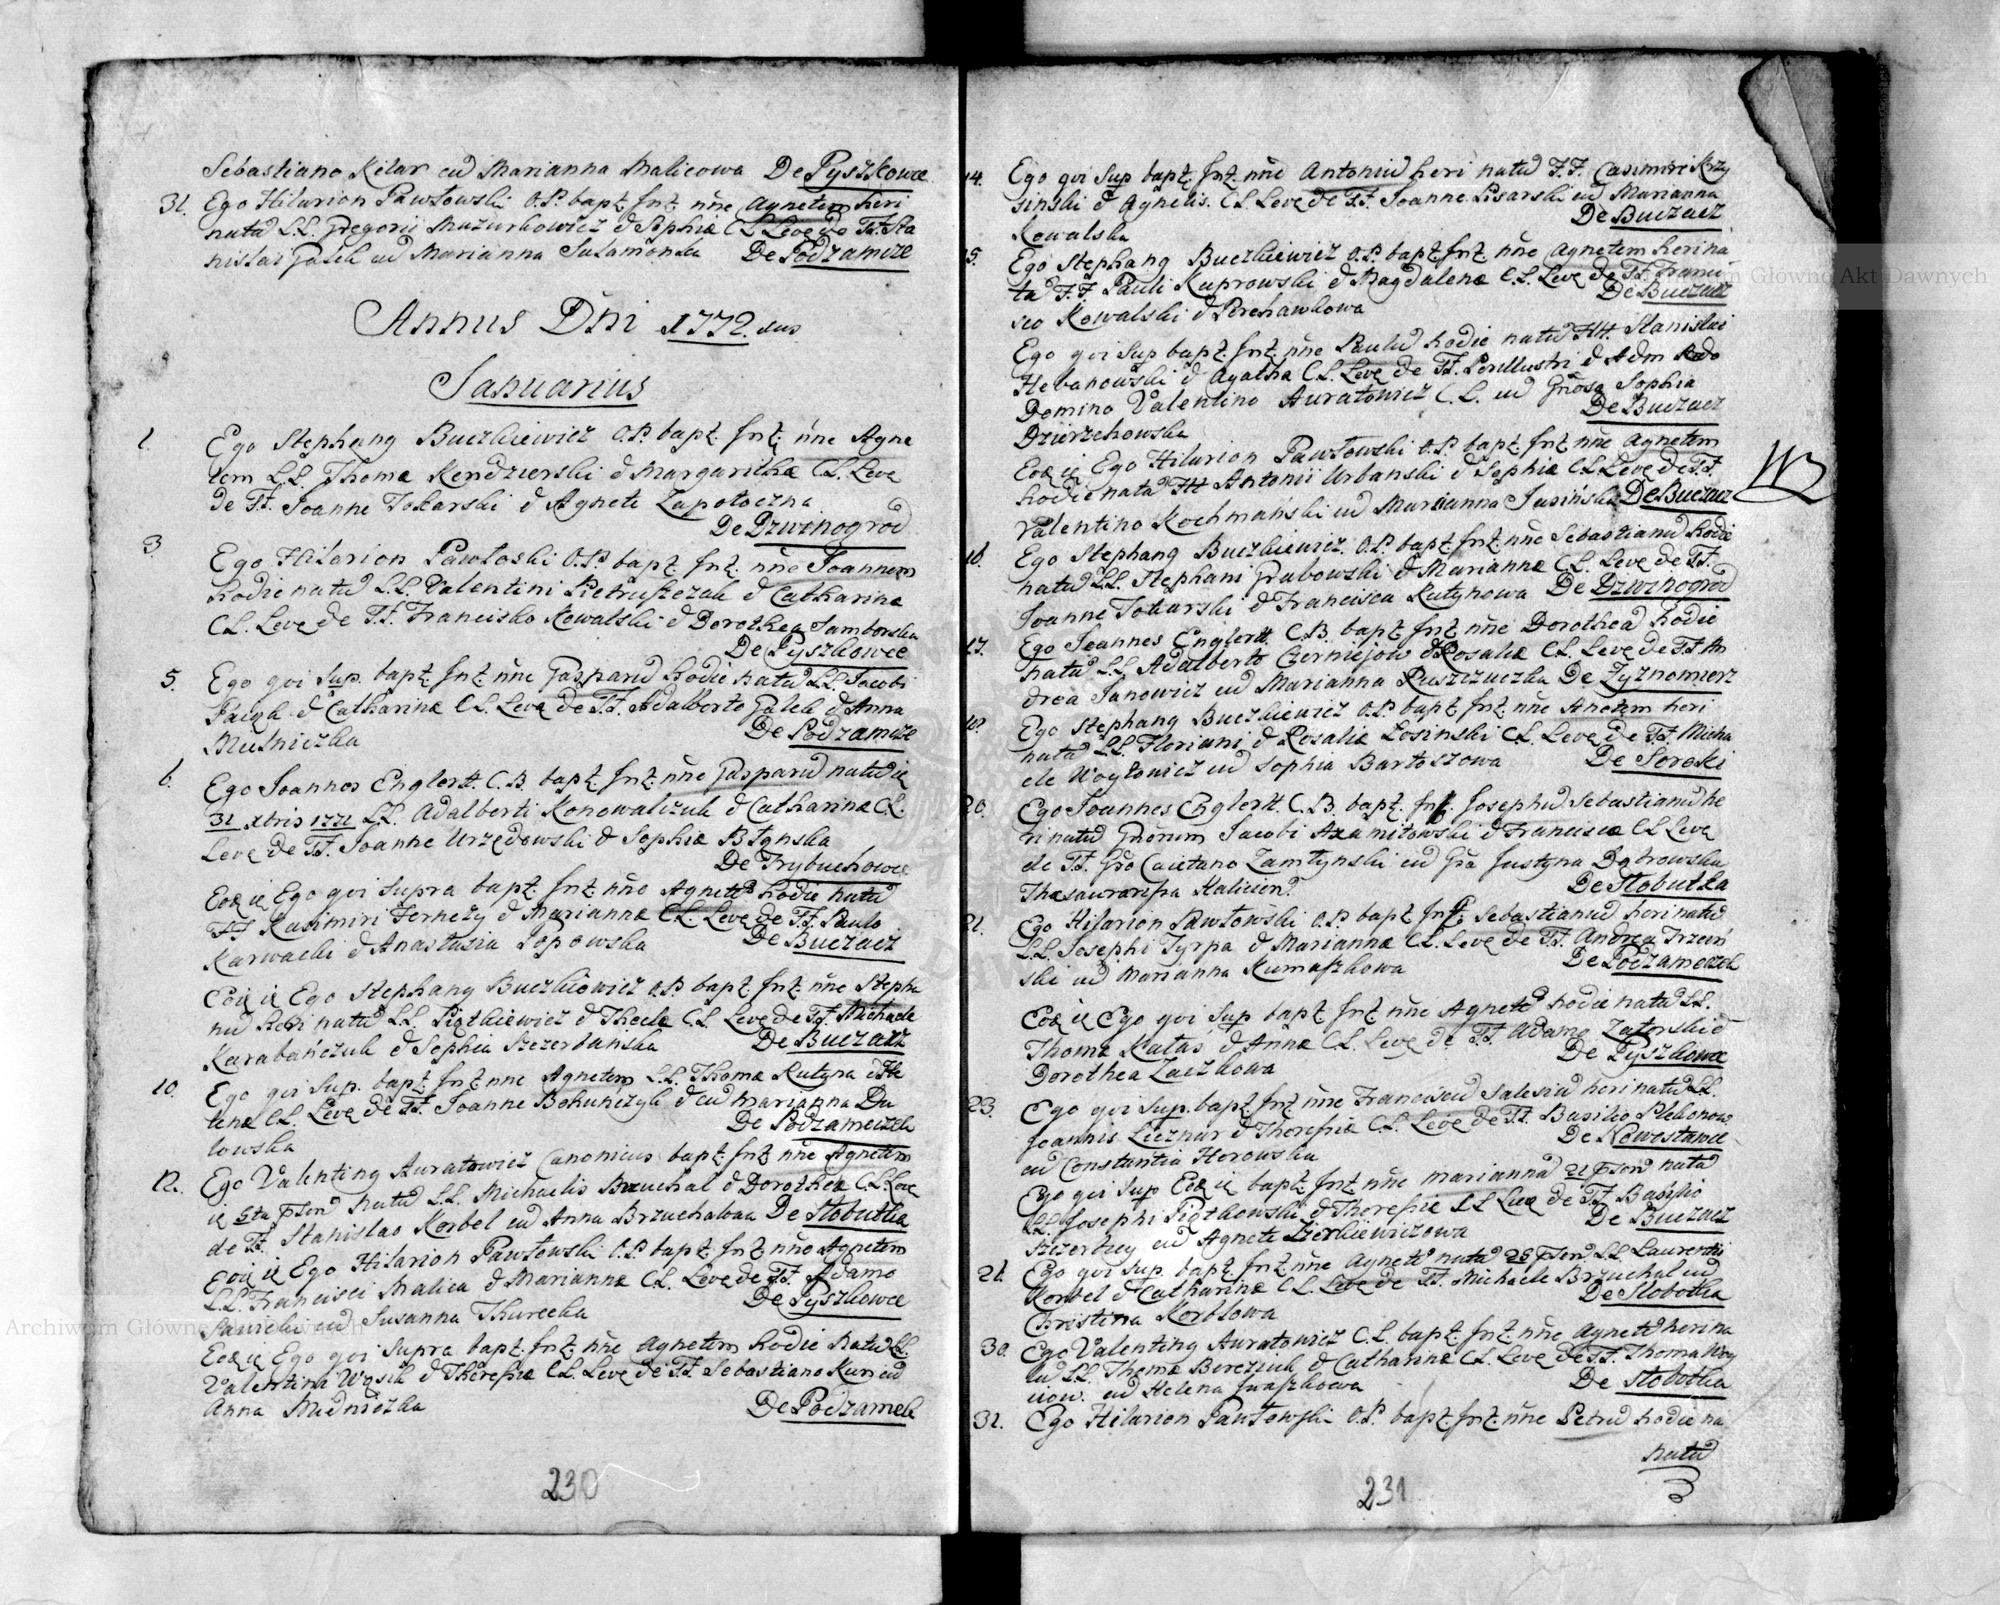 Sebastiano Kilar cu Marianna Malicowa De Pyszkowce
31. Ego Hilarion Pawłowski O.P. bapt. fnt. nñe Agnetem heri
nata L.L. Gregorii Mazurkowicz & Sophiæ CL Leve de FF. Sta
nislai Galek cu Marianna Salamonka De Podzamcze
Annus Dñi 1772 dus
Januarius
1. Ego Stephang Buczkiewicz O.P. bapt. fnt. nñe Agne
tem L.L. Thomæ Kendzierski & Margarithæ CL. Leve
De FF. Joanne Tokarski & Agnete Zapotoczna
De Dzwinogrod
3. Ego Hilarion Pawłoski O.P. bapt. fnt. nñe Joannem
hodie natu L.L. Valentini Pietruszczak & Catharinæ
CL. Leve de FF. Francisko Kowalski & Dorothea Samborska
De Pyszkowce
5. Ego qvi Sup. bapt. fnt nñe Gasparu hodie natu LL. Jacobi
& Catharinæ CL. Leve de FF. Adalberto Galek & Anna
Mulniczka De Podzamcze
6. Ego Joannes Englertt C.B. bapt. fnt. nñe Gasparu natu
31 xbris 1771 L.L. Adalberti Konowalczuk & Catharinæ CL.
Leve de FF. Joanne Urzędowski & Sophiæ
De Trybuchowce
Ego qvi Supra bapt. fnt. nño Agnete hodie natu
FF Kazimiri & Mariannæ CL. Leve de FF. Paulo
Karwacki & Anastasia Popowska De Buczacz
Ego Stephang Buczkiewicz O.P. bapt. fnt. nñe Stepha
nu heri natu L.L. Piotkiewicz & Theclæ CL. Leve de FF. Michaele
Karabańczuk & Sophia Szczerbanska De Buczacz
10. Ego qvi Sup. bapt. fnt nñe Agnetem L.L. Thomæ Kutyna & He
lenæ CL. Leve de FF. Joanne Bohunczyk & cu Marianna Du
lowska De Podzameczek
12. Ego Valenting Auratowicz Canonicus bapt. fnt nñe Agnetem
6ta natu L.L. Michaelis Brzuchal & Dorotheæ CL Leve
de FF. Stanislao Korbel cu Anna Brzuchalowa De Slobutka
Ego Hilarion Pawłowski O.P. bapt. fnt nño Agnetem
L.L. Francisci Malica & Mariannæ CL. Leve de FF. Adamo
cu Susanna Thurecka De Pyszkowce
Ego qvi Supra bapt. fnt. nñe Agnetem hodie natu LL.
Valentina & Theresiæ CL. Leve de FF. Sebastiano Kuri cu
Anna De Podzamcze
230
14. Ego qvi Sup bapt. fnt. nñe Antoniu heri natu F.F. Casimiri Krzy
sinski & Agnetis. CL Leve de FF. Joanne Pisarski cu Marianna
Kowalska De Buczacz
15. Ego Stephang Buczkiewicz O.P. bapt. fnt nñe Agnetem heri na
ta F.F. Pauli Kuprowski & Magdalenæ CL. Leve de FF. Franci
sco Kowalski & Perehawkowa De Buczacz
Ego qvi Sup bapt. fnt. nñe Paulu hodie natu Stanislai
Hebanowski & Agathæ CL. Leve de FF. Perillustri & Adm Rdo
Domino Valentino Auratowicz C.L. cu Gñosa Sophia
Dzierzchowska De Buczacz
Ego Hilarion Pawłowski O.P. bapt. fnt nñe Agnetem
hodie nata Antonii Urbanski & Sophiæ CL Leve de FF.
Valentino Kochmański cu Marianna Jasińska De Buczacz
16. Ego Stephang Buczkiewicz. O.P. bapt. fnt. nñe Sebastianu hodie
natu L.L. Stephani Grabowski & Mariannæ CL. Leve de FF.
Joanne Tokarski & Francisca Kutynowa De Dzwinogrod
17. Ego Joannes Englertt. C.B. bapt. fnt nñe Dorothea hodie
nata L.L. Adalberto Czerniejow & Rosaliæ CL. Leve de FF An
drea Janowicz cu Marianna Ruszczuczka De Zyznomierz
18. Ego Stephang Buczkiewicz O.P. bapt. fnt nñe Anetem heri
nata L.L. Floriani & Rosaliæ Losinski CL. Leve de FF. Micha
ele Woytowicz cu Sophia Bartoszowa De Soroki
20. Ego Joannes Englertt. C.B. bapt. fnt. Josephu Sebastianu he
ri natu Gñorum Jacobi Axamitowski & Franciscæ CL Leve
de FF. Gño Caietano Zamłynski cu Gña Justyna Dąbrowska
Thesaurarissa Haliciens. De Slobutka
21. Ego Hilarion Pawłowski O.P. bapt. fnt. Sebastianu heri natu
L.L. Josephi Tyrpa & Mariannæ CL. Leve de FF. Andrea Trzciń
ski cu Marianna Kumaszkowa De Podzameczek
Ego qvi Sup bapt. fnt nñe Agnete hodie natu LL.
Thomæ Kałas & Annæ CL. Leve de FF. Adamo Zatorski &
Dorothea Zaczkowa De Pyszkowce
23. Ego qvi Sup. bapt. fnt. nñe Franciscu Salesiu heri natu LL.
Joannis Licznar & Theresiæ CL. Leve de FF. Basilio Plebanow
cu Constantia Horowska De Nowostawce
Ego qvi Sup bapt. fnt. nñe Marianna 21 nata
L.L. Josephi Piątkowski & Theresiæ LL Leve de FF Basilio
Szczerbrey cu Agnete De Buczacz
Ego qvi Sup. bapt. fnt nñe Agnete nata LL Laurentii
Korbel & Catharinæ CL. Leve de FF. Michaele Brzuchal cu
Christina Korblowa De Slobotka
30. Ego Valenting Auratowicz C.L. bapt. fnt nñe Agnete heri na
tu LL. Thomæ Berezuk & Catharinæ CL. Leve de FF. Thoma Woy
ciow. cu Helena De Slobotka
31. Ego Hilarion Pawłowski O.P. bapt. fnt. nñe Petru hodie na
natu
231
Archiwum Główne Akt Dawnych
Archiwum Główne Akt Dawnych